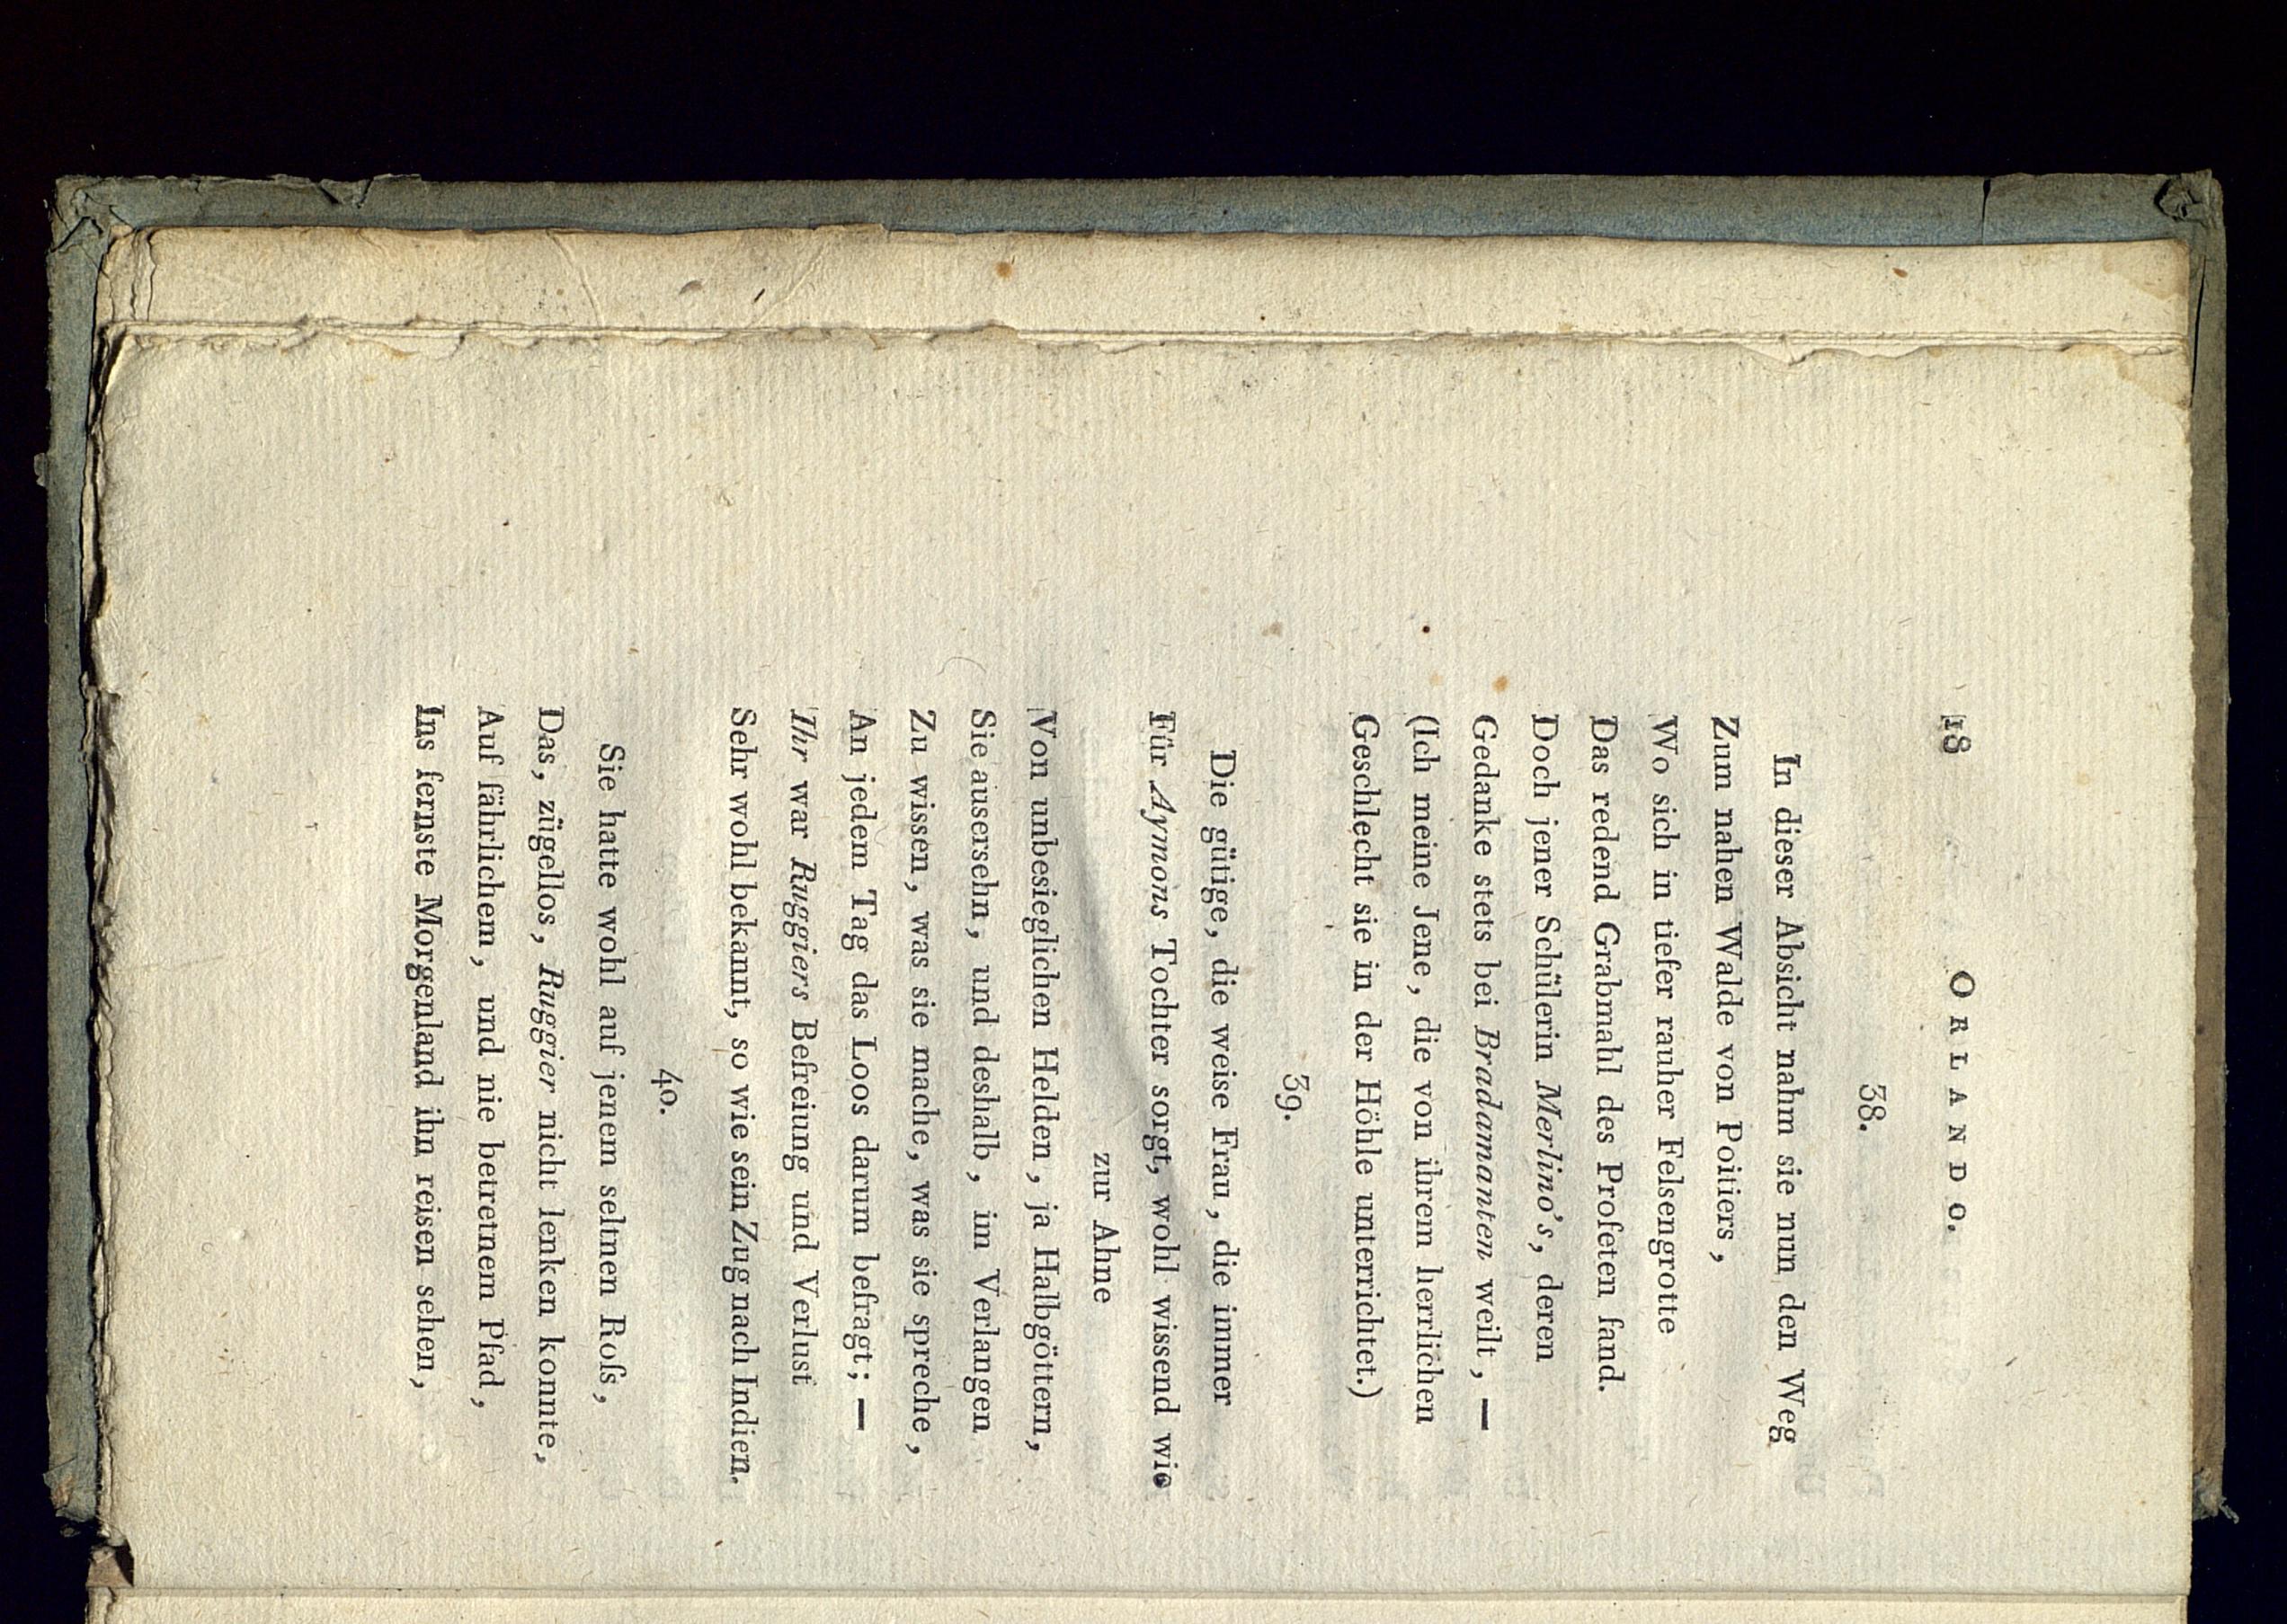 18
ORLANDO.
38.
In dieser Absicht nahm sie nun den Weg
Zum nahen Walde von Poitiers,
Wo sich in tiefer rauher Felsengrotte
Das redend Grabmahl des Profeten fand.
Doch jener Schülerin Merlino's, deren
Gedanke stets bei Bradamanten weilt, —
(Ich meine Jene, die von ihrem herrlichen
Geschlecht sie in der Höhle unterrichtet.)
39.
Die gütige, die weise Frau, die immer
Für Aymons Tochter sorgt, wohl wissend wie
zur Ahne
Von unbesieglichen Helden, ja Halbgöttern,
Sie ausersehn, und deshalb, im Verlangen
Zu wissen, was sie mache, was sie spreche,
An jedem Tag das Loos darum befragt; —
Ihr war Ruggiers Befreiung und Verlust
Sehr wohl bekannt, so wie sein Zug nach Indien.
40.
Sie hatte wohl auf jenem seltnen Roſs,
Das, zügellos, Ruggier nicht lenken konnte,
Auf fährlichem, und nie betretnem Pfad,
Ins fernste Morgenland ihn reisen sehen,